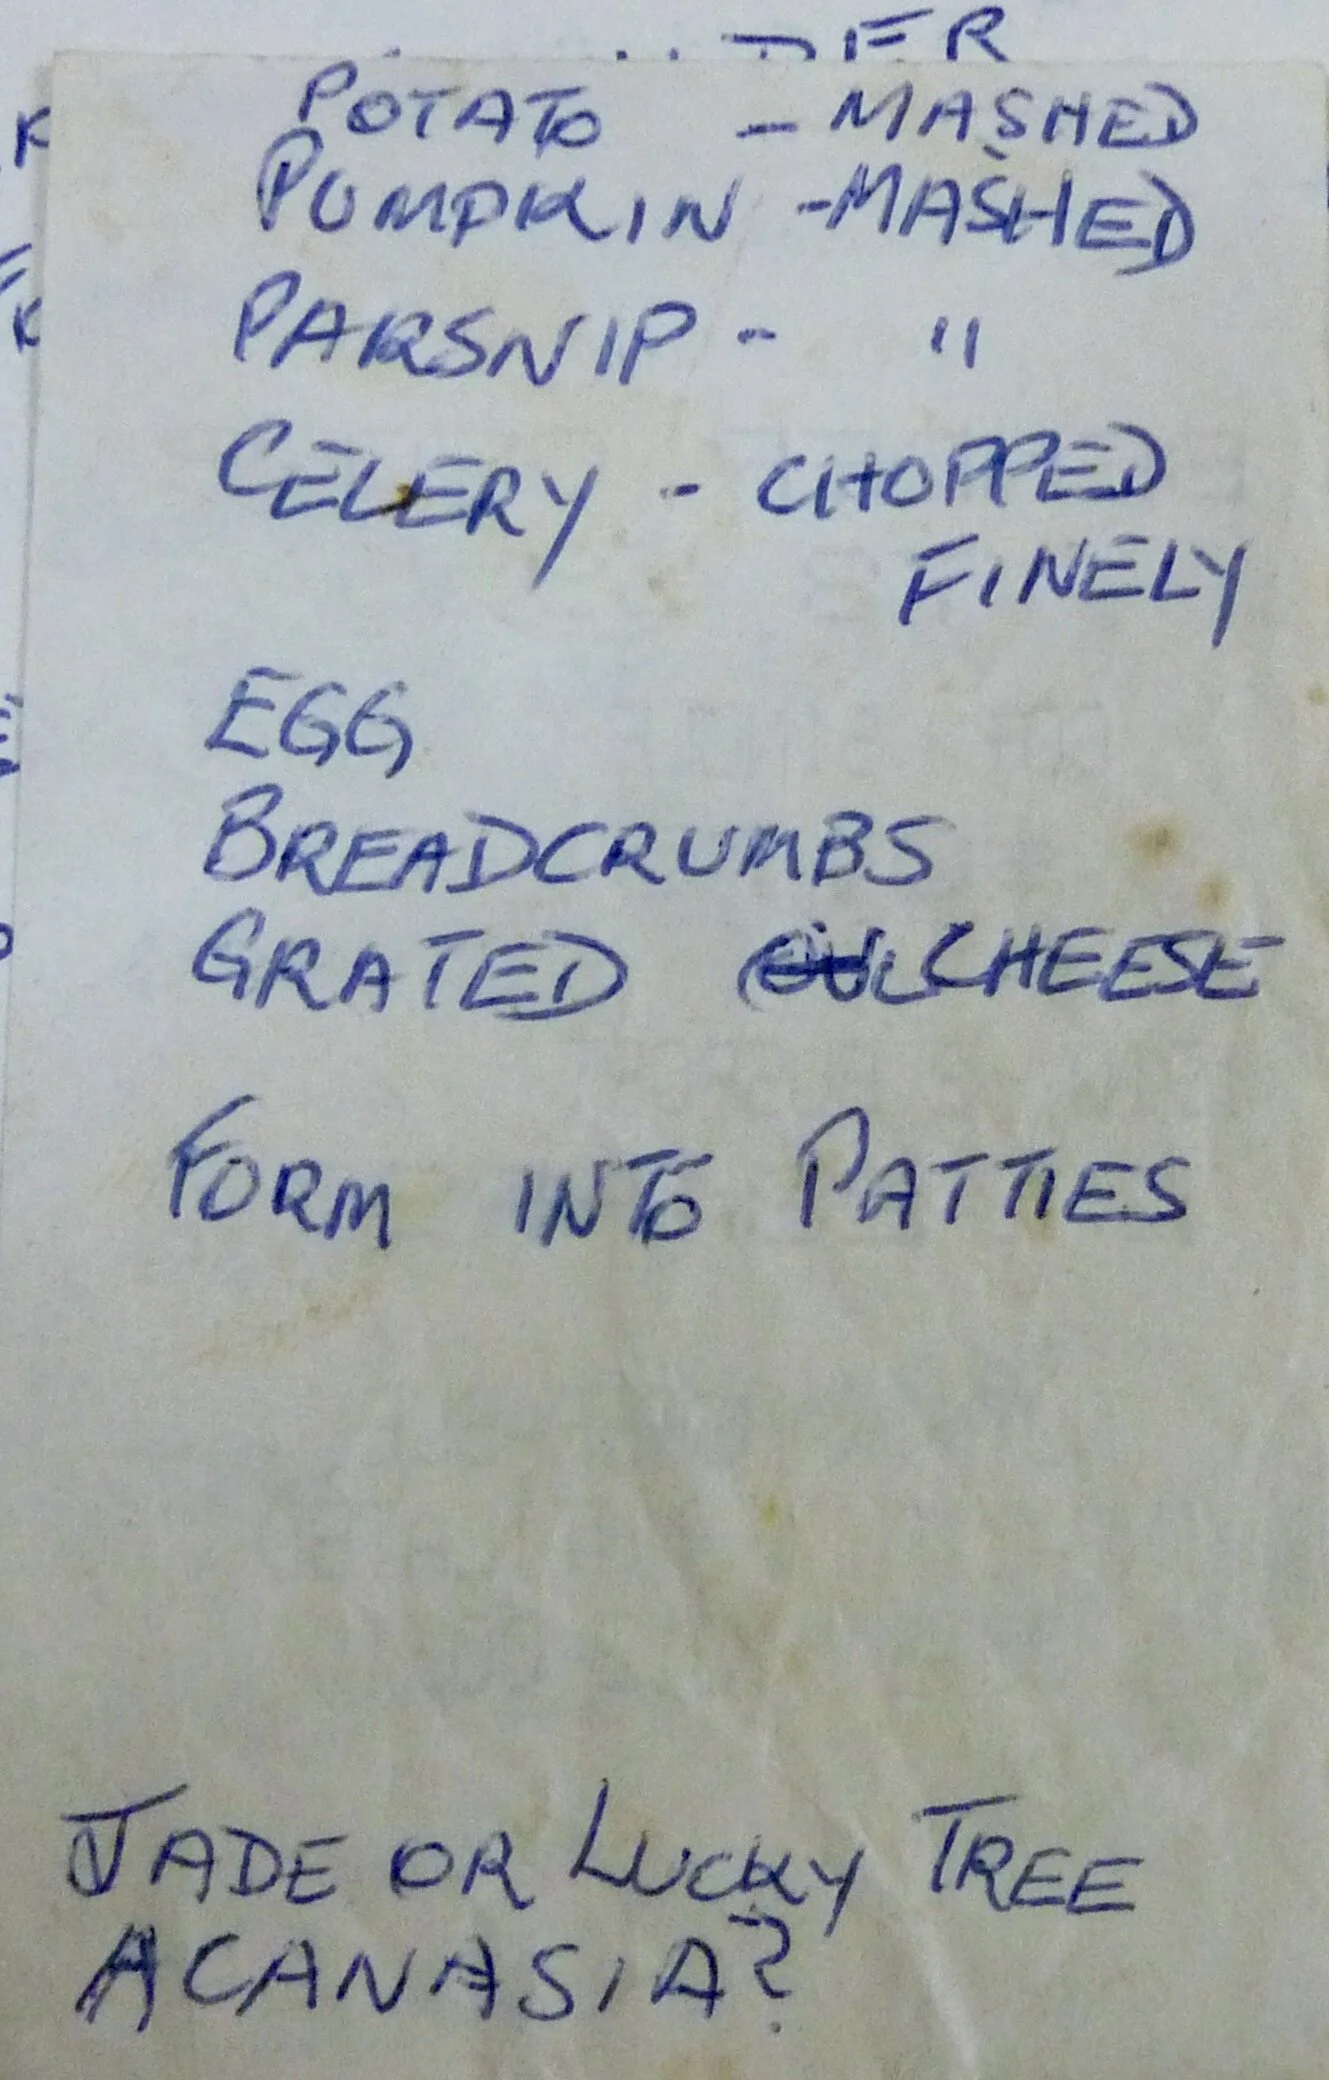 POTATO - MASHED
PUMPKIN - MASHED
PARSNIP - "
CELERY - CHOPPED
FINELY
EGG
BREADCRUMBS
GRATED CHEESE
FORM INTO PATTIES
JADE OR LUCKY TREE
ACANASIA?